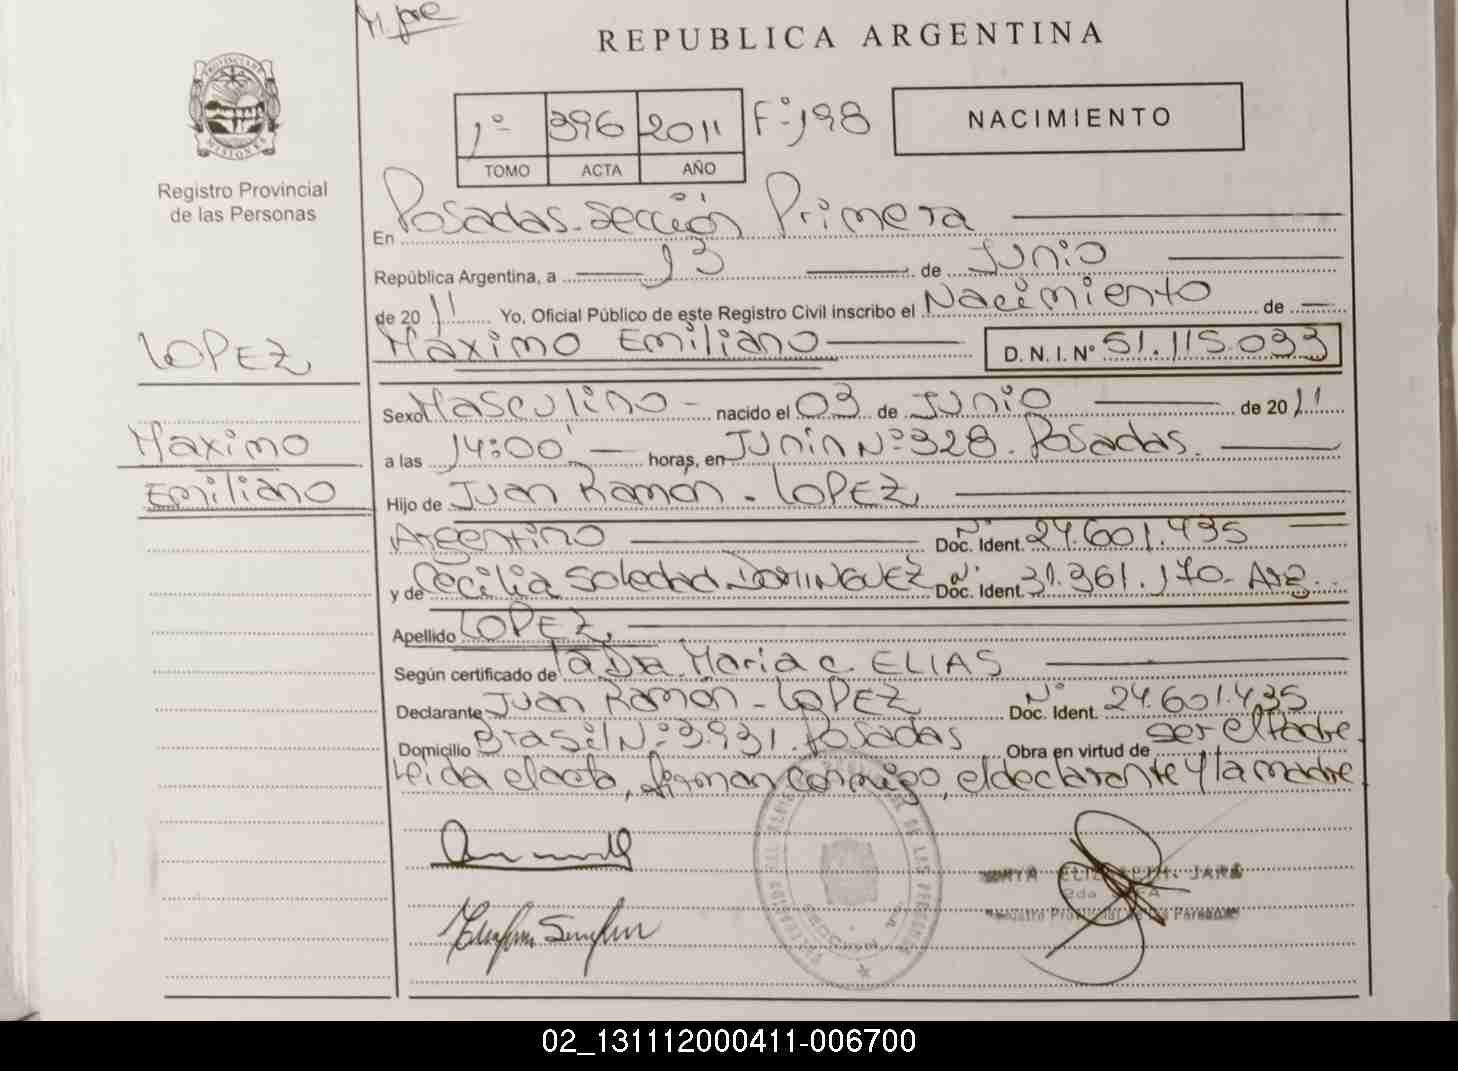 REPUBLICA ARGENTINA
PROVINCIA DE MISIONES
Registro Provincial
de las Personas
1º 396 2011 Fº 198
TOMO ACTA AÑO
NACIMIENTO
En Posadas. Sección Primera
República Argentina, a 13 de Junio
de 20 11 Yo, Oficial Público de este Registro Civil inscribo el Nacimiento de
Maximo Emiliano D. N. I. Nº 51.115.033
LOPEZ
Maximo
Emiliano
Sexo Masculino - nacido el 03 de Junio de 20 11
a las 14:00 horas, en Junin Nº 328. Posadas.
Hijo de Juan Ramón - LOPEZ,
Argentino Doc. Ident. Nº 24.601.435
y de Cecilia Soledad DOMINGUEZ Doc. Ident. Nº 31.361.170. Arg.
Apellido LOPEZ,
Según certificado de la Dra. Maria C. ELIAS
Declarante Juan Ramón - LOPEZ Doc. Ident. Nº 24.601.435
Domicilio Brasil Nº 3931. Posadas Obra en virtud de ser el Padre.
Leida el acta, firman conmigo, el declarante y la madre
JARA
Registro Provincial de las Personas
02_131112000411-006700